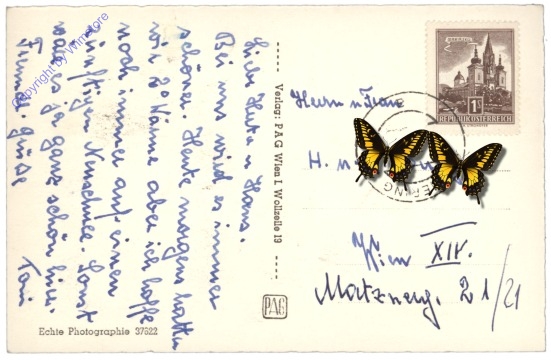 Liebe Herta u. Hans.
Bei uns wird es immer
schöner. Heute morgens hatten
wir 20 Wärme aber ich hoffe
noch immer auf einen
zünftigen Neuschnee. Sonst
wäre es ja ganz schön hier.
Grüße
Toni
Copyright by vimastore
Verlag: PAG Wien I, Wollzeile 13
PAG
Echte Photographie 37822
MARIAZELL
1S
REPUBLIK ÖSTERREICH
Herrn u. Frau
H.
Wien XIV.
Matznerg. 21/21